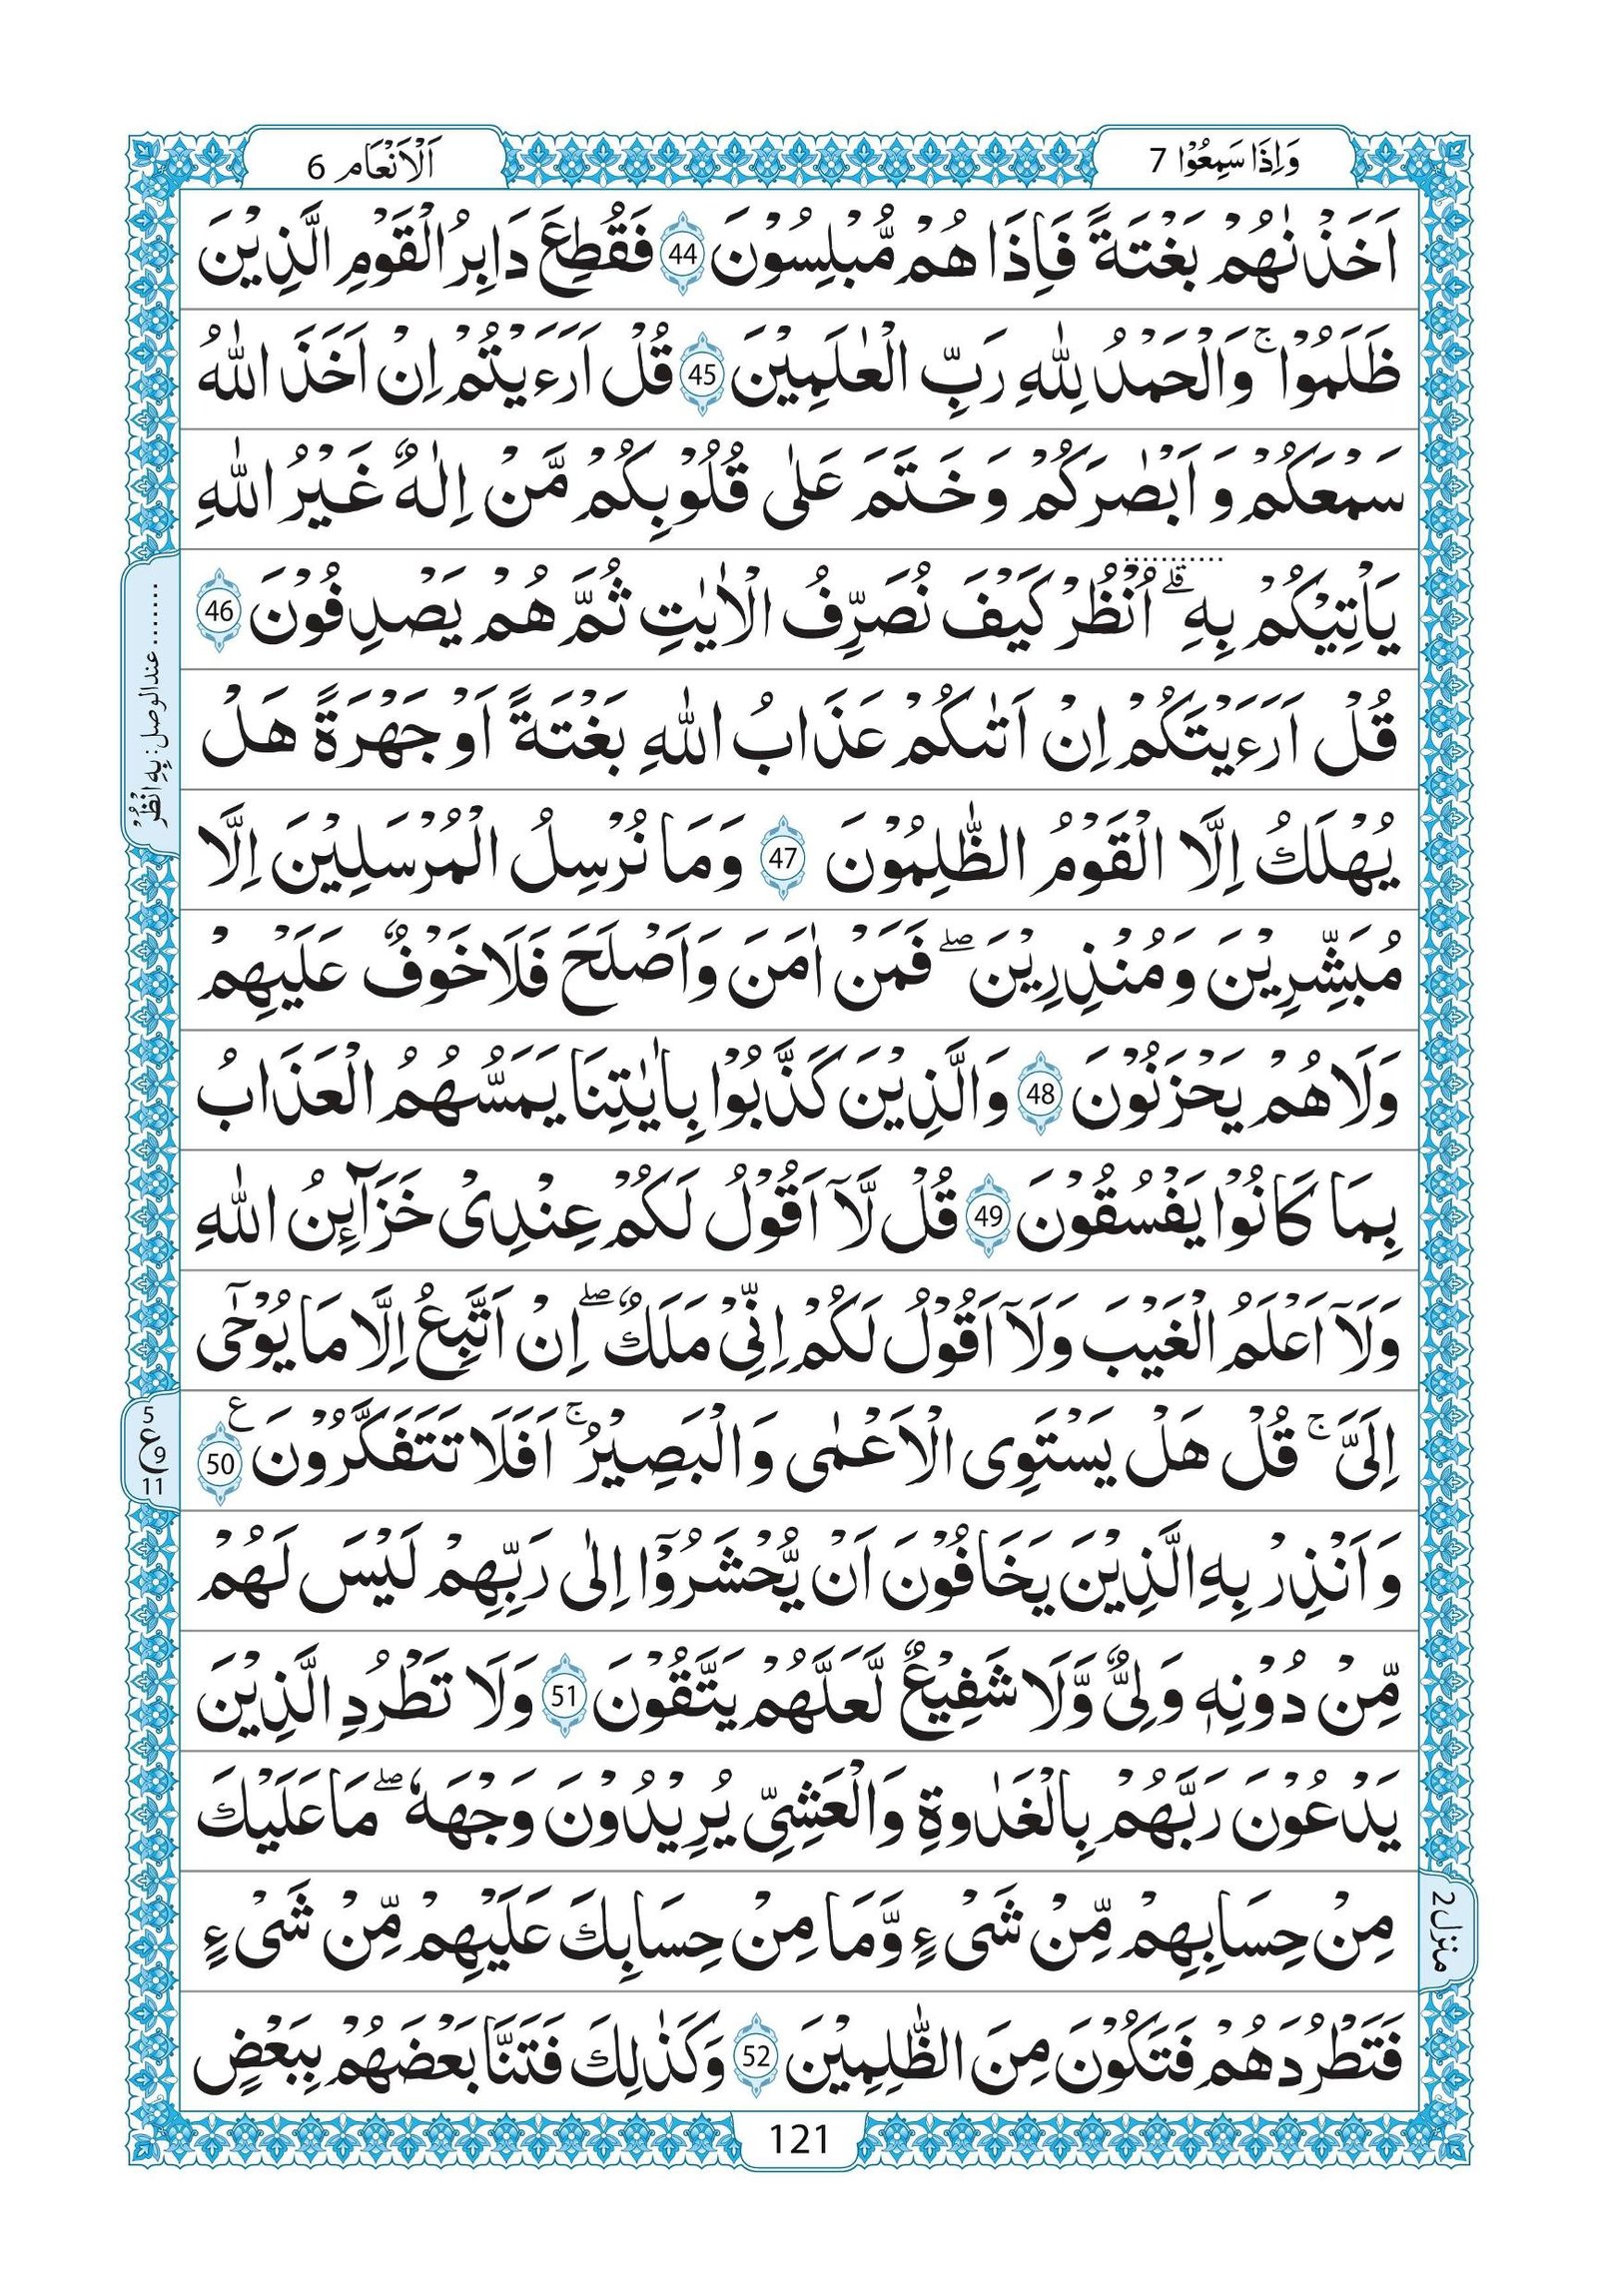 وَاِذَا سَمِعُوْا 7
اَلْاَنْعَام 6
اَخَذْنٰهُمْ بَغْتَةً فَاِذَا هُمْ مُّبْلِسُوْنَ 44 فَقُطِعَ دَابِرُ الْقَوْمِ الَّذِيْنَ
ظَلَمُوْا ۚ وَالْحَمْدُ لِلّٰهِ رَبِّ الْعٰلَمِيْنَ 45 قُلْ اَرَءَيْتُمْ اِنْ اَخَذَ اللّٰهُ
سَمْعَكُمْ وَ اَبْصٰرَكُمْ وَ خَتَمَ عَلٰى قُلُوْبِكُمْ مَّنْ اِلٰهٌ غَيْرُ اللّٰهِ
يَأْتِيْكُمْ بِهِ ۗ اُنْظُرْ كَيْفَ نُصَرِّفُ الْاٰيٰتِ ثُمَّ هُمْ يَصْدِفُوْنَ 46
قُلْ اَرَءَيْتَكُمْ اِنْ اَتٰىكُمْ عَذَابُ اللّٰهِ بَغْتَةً اَوْ جَهْرَةً هَلْ
يُهْلَكُ اِلَّا الْقَوْمُ الظّٰلِمُوْنَ 47 وَمَا نُرْسِلُ الْمُرْسَلِيْنَ اِلَّا
مُبَشِّرِيْنَ وَمُنْذِرِيْنَ ۖ فَمَنْ اٰمَنَ وَاَصْلَحَ فَلَا خَوْفٌ عَلَيْهِمْ
وَلَا هُمْ يَحْزَنُوْنَ 48 وَالَّذِيْنَ كَذَّبُوْا بِاٰيٰتِنَا يَمَسُّهُمُ الْعَذَابُ
بِمَا كَانُوْا يَفْسُقُوْنَ 49 قُلْ لَّآ اَقُوْلُ لَكُمْ عِنْدِىْ خَزَآئِنُ اللّٰهِ
وَلَآ اَعْلَمُ الْغَيْبَ وَلَآ اَقُوْلُ لَكُمْ اِنِّىْ مَلَكٌ ۖ اِنْ اَتَّبِعُ اِلَّا مَا يُوْحٰٓى
اِلَىَّ ۚ قُلْ هَلْ يَسْتَوِى الْاَعْمٰى وَالْبَصِيْرُ ۚ اَفَلَا تَتَفَكَّرُوْنَ ع 50
وَ اَنْذِرْ بِهِ الَّذِيْنَ يَخَافُوْنَ اَنْ يُّحْشَرُوْٓا اِلٰى رَبِّهِمْ لَيْسَ لَهُمْ
مِّنْ دُوْنِهٖ وَلِىٌّ وَّلَا شَفِيْعٌ لَّعَلَّهُمْ يَتَّقُوْنَ 51 وَلَا تَطْرُدِ الَّذِيْنَ
يَدْعُوْنَ رَبَّهُمْ بِالْغَدٰوةِ وَالْعَشِىِّ يُرِيْدُوْنَ وَجْهَهٗ ۖ مَا عَلَيْكَ
مِنْ حِسَابِهِمْ مِّنْ شَىْءٍ وَّمَا مِنْ حِسَابِكَ عَلَيْهِمْ مِّنْ شَىْءٍ
فَتَطْرُدَهُمْ فَتَكُوْنَ مِنَ الظّٰلِمِيْنَ 52 وَكَذٰلِكَ فَتَنَّا بَعْضَهُمْ بِبَعْضٍ
.......... عند الوصل: بِهِ انْظُرْ
5
ع 9
11
منزل 2
121